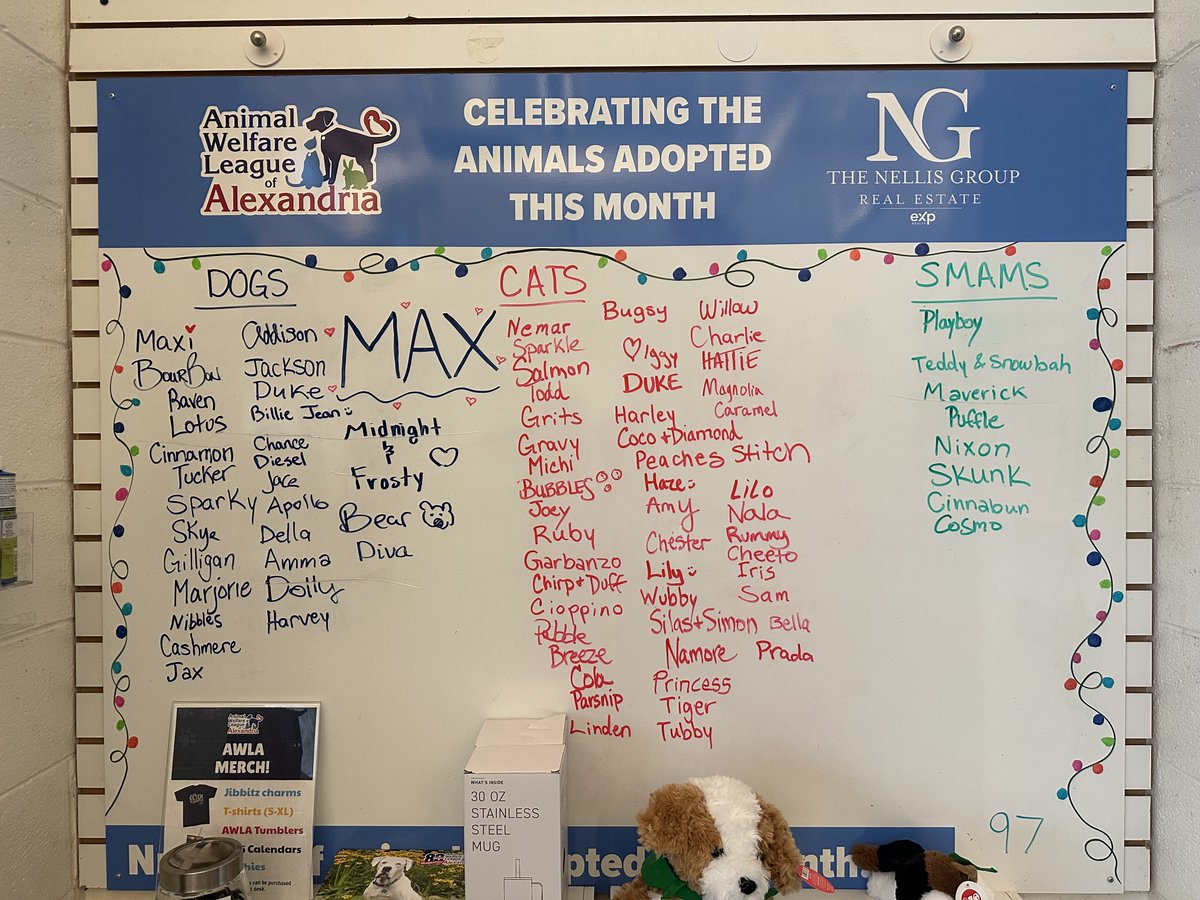 Animal
Welfare
League
of
Alexandria
CELEBRATING THE
ANIMALS ADOPTED
THIS MONTH
NG
THE NELLIS GROUP
REAL ESTATE
exp
REALTY
DOGS
Maxi
BourBon
Raven
Lotus
Cinnamon
Tucker
Sparky
Skye
Gilligan
Marjorie
Nibbles
Cashmere
Jax
Addison
Jackson
Duke
Billie Jean
Chance
Diesel
Jace
Apollo
Della
Amma
Dolly
Harvey
MAX
Midnight
&
Frosty
Bear
Diva
CATS
Nemar
Sparkle
Salmon
Todd
Grits
Gravy
Michi
BUBBLES
Joey
Ruby
Garbanzo
Chirp + Duff
Cioppino
Pebble
Breeze
Cola
Parsnip
Linden
Bugsy
Iggy
DUKE
Harley
Coco + Diamond
Peaches
Haze
Amy
Chester
Lily
Wubby
Silas + Simon
Namore
Princess
Tiger
Tubby
Willow
Charlie
HATTIE
Magnolia
Caramel
Stitch
Lilo
Nala
Rummy
Cheeto
Iris
Sam
Bella
Prada
SMAMS
Playboy
Teddy & Snowbah
Maverick
Puffle
Nixon
Skunk
Cinnabun
Cosmo
97
Animal
Welfare
League of
Alexandria
AWLA
MERCH!
Jibbitz charms
T-shirts (S-XL)
AWLA Tumblers
Calendars
can be purchased
desk.
WHAT'S INSIDE
30 OZ
STAINLESS
STEEL
MUG